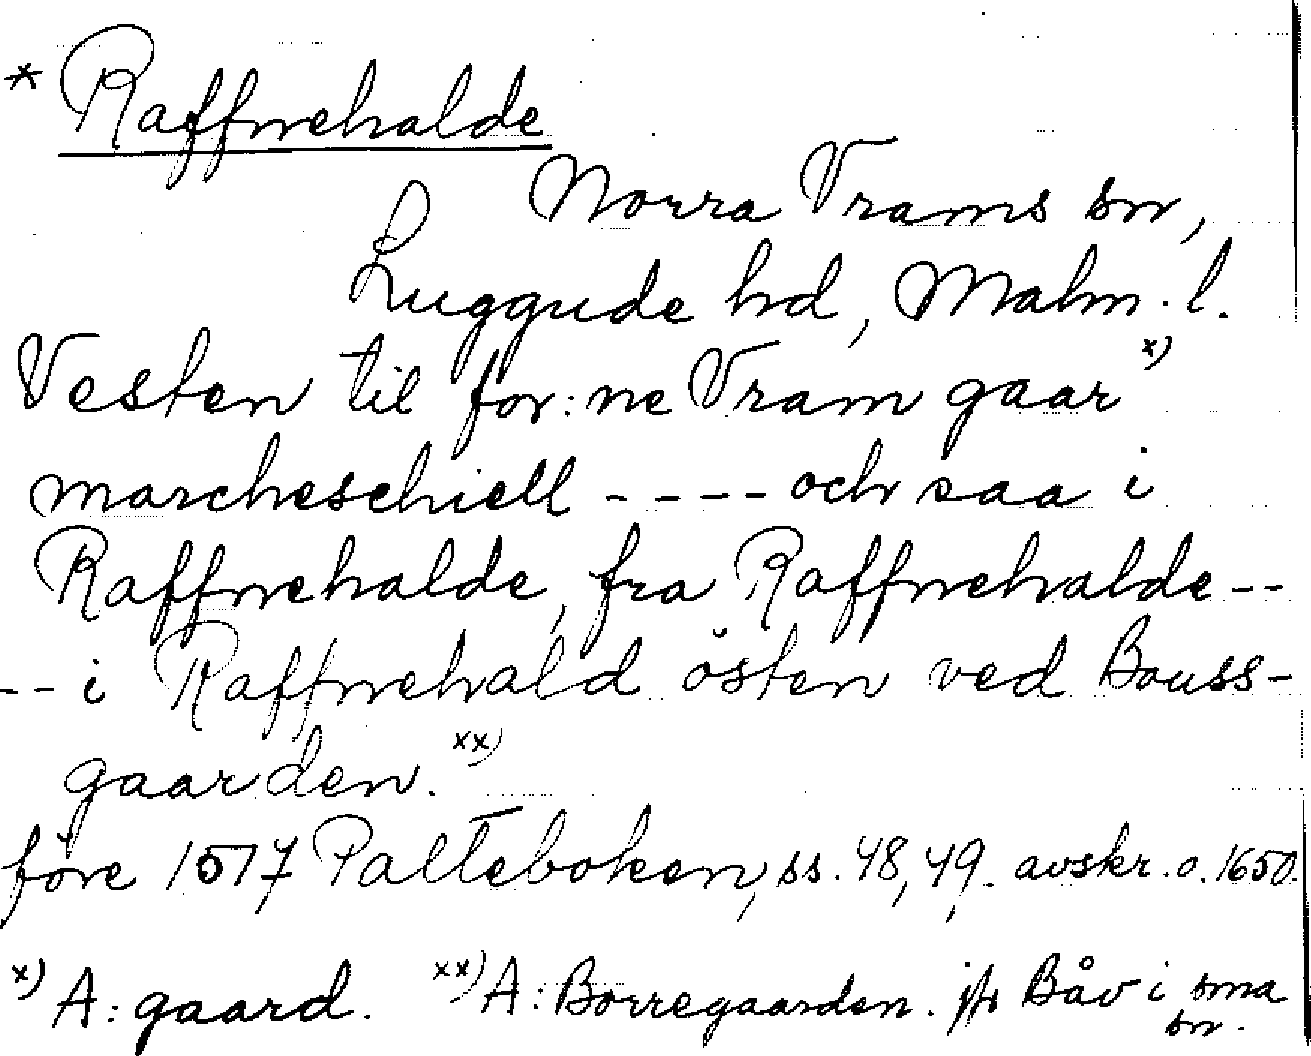 * Raffnehalde
Norra Vrams sn,
Luggude hd, Malm. l.
Vesten til for: ne Vram gaar x)
marcheschiell ---- och saa i
Raffnehalde, fra Raffnehalde --
-- i Raffnehald östen ved Bouss-
gaarden. xx)
före 1517 Palteboken, ss. 48, 49. avskr. o. 1650.
x) A: gaard. xx) A: Borregaarden. jfr Båv i sma
sn.